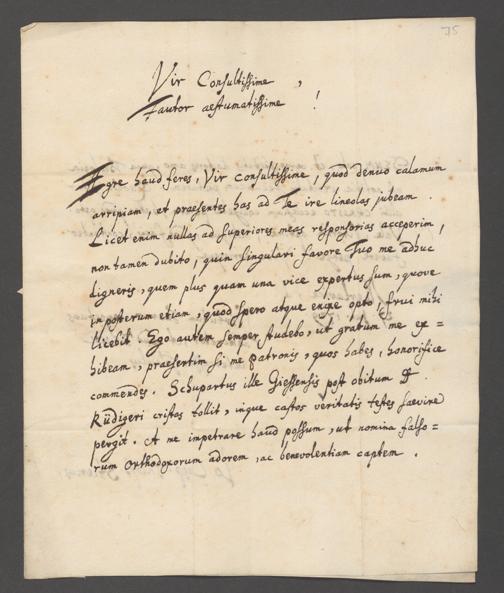 75
Vir Consultissime,
Fautor aestumatissime!
Ægre haud feres, Vir consultissime, quod denuo calamum
arripiam, et praesentes has ad Te ire lineolas jubeam.
Licet enim nullas ad superiores meas responsorias acceperim,
non tamen dubito, quin singulari favore Tuo me adhuc
digneris, quem plus quam una vice expertus sum, quove
in posterum etiam, quod spero atque enixe opto, frui mihi
licebit. Ego autem semper studebo, ut gratum me ex=
hibeam, praesertim si me patronis, quos habes, honorifice
commendes. Schupartus ille Giessensis post obitum D.
Rüdigeri cristas tollit, inque castos veritatis testes saevire
pergit. A me impetrare haud possum, ut nomina falso=
rum orthodoxorum adorem, ac benevolentiam captem.